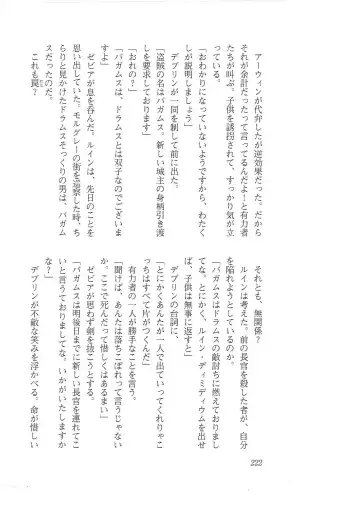 アーウィンが代弁したが逆効果だった。だから
それが余計だったって言ってるんだよ！と有力者
たちが叫ぶ。子供を誘拐されて、すっかり気が立
っている。
「おわかりになっていないようですから、わたく
しが説明しましょう」
デブリンが一同を制して前に出た。
「盗賊の名はバガムス。新しい城主の身柄引き渡
しを要求しております」
「おれの？」
「バガムスは、ドラムスとは双子なのでございま
すよ」
ゼビアが息を呑んだ。ルインは、先日のことを
思い出していた。モルグレーの街を視察した時、ち
らりと見かけたドラムスそっくりの男は、バガム
スだったのだ。
これも罠？
それとも、無関係？
ルインは考えた。前の長官を殺した者が、自分
を陥れようとしているのか。
「バガムスはドラムスの敵討ちに燃えておりまし
てな。とにかく、ルイン・ディミディウムを出せ
ば、子供は無事に返すと」
デブリンの台詞に、
「とにかくあんたが一人で出ていってくれりゃこ
っちはすべて片がつくんだ」
有力者の一人が勝手なことを言う。
「聞けば、あんたは落ちこぼれって言うじゃない
か。ここで死んだって惜しくはあるまい」
ゼビアが思わず剣を抜こうとする。
「バガムスは明後日までに新しい長官を連れてこ
いと言うておりましてな。いかがいたしますか
な？」
デブリンが不敵な笑みを浮かべる。命が惜しい
222